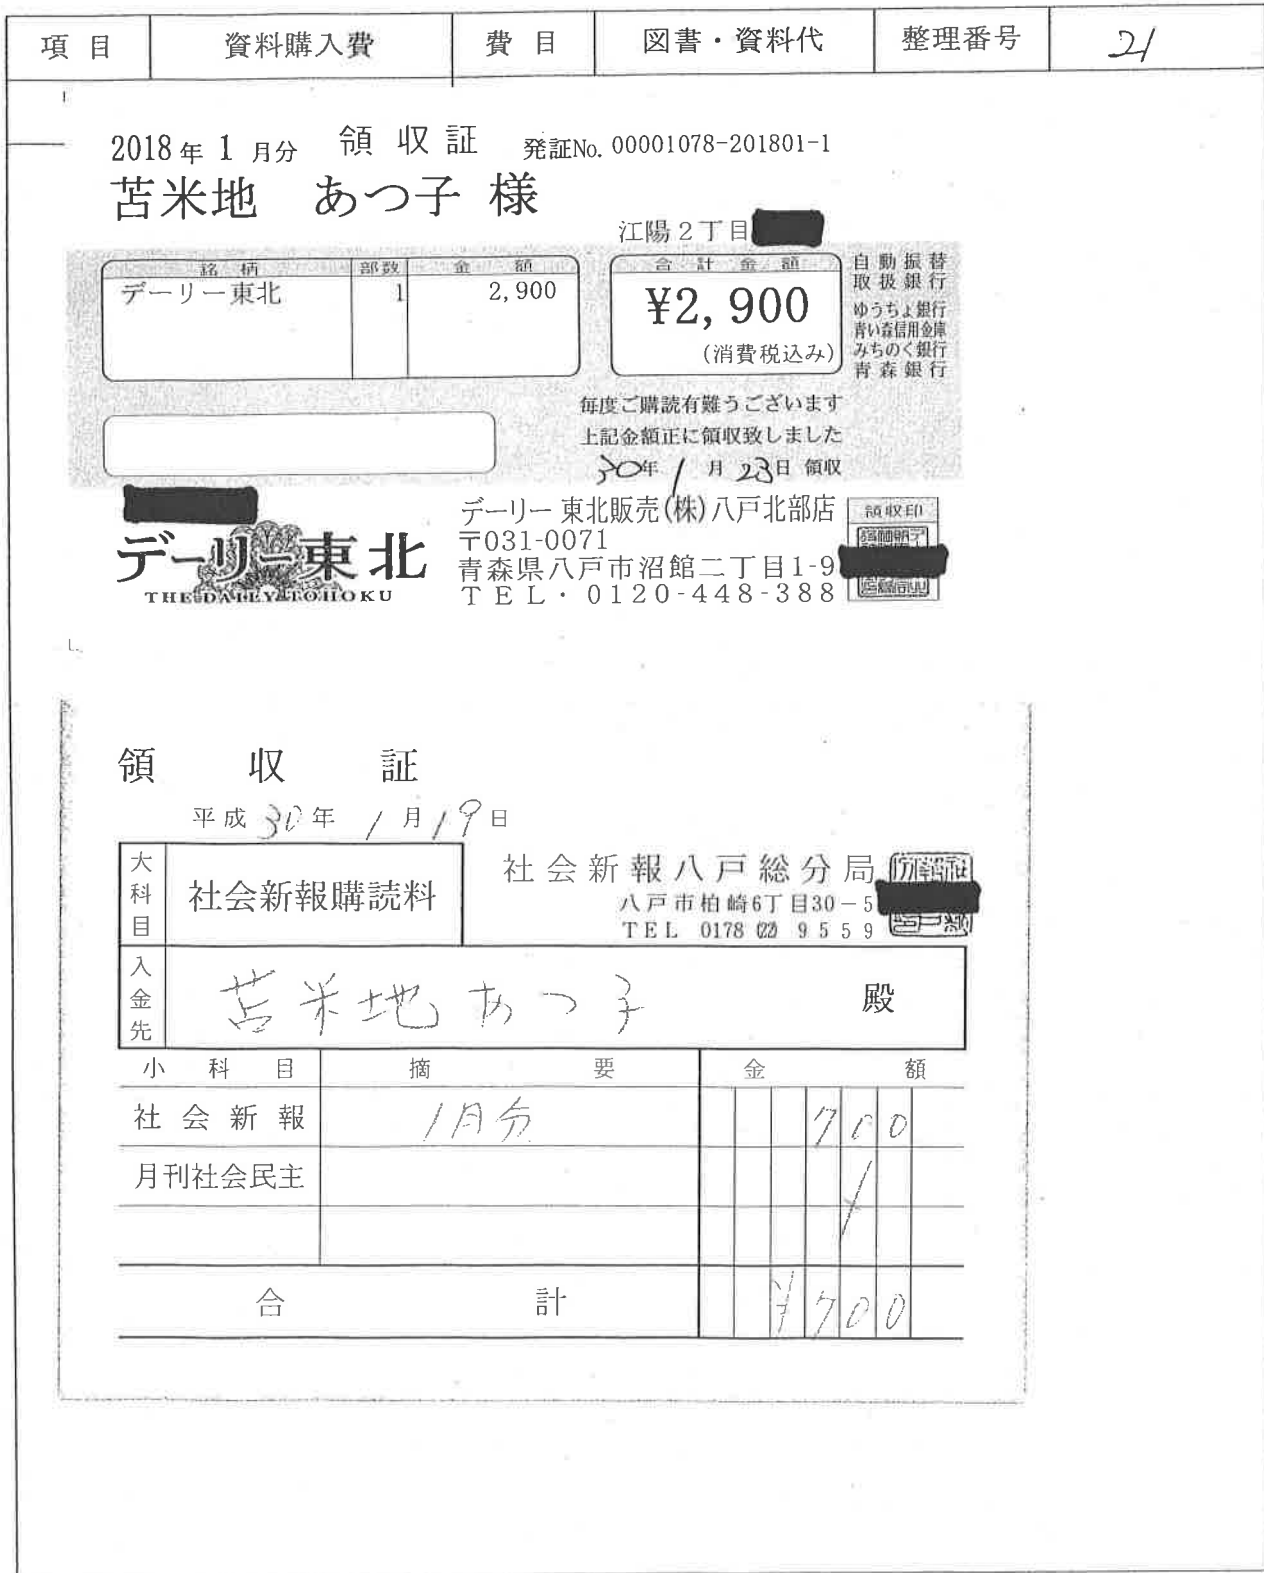 項 目 資料購入費 費 目 図書・資料代 整理番号 21
2018年 1 月分 領 収 証 発証No. 00001078-201801-1
苫米地 あつ子 様
江陽2丁目
銘 柄 部数 金 額
デーリー東北 1 2,900
合 計 金 額
¥2,900
(消費税込み)
自動振替
取扱銀行
ゆうちょ銀行
青い森信用金庫
みちのく銀行
青森銀行
毎度ご購読有難うございます
上記金額正に領収致しました
30年 1 月 23日 領収
デーリー東北
THE DAILY TOHOKU
デーリー東北販売(株)八戸北部店
〒031-0071
青森県八戸市沼館二丁目1-9
TEL・0120-448-388
領収印
領 収 証
平成 30年 1 月 19日
大科目 社会新報購読料
社会新報八戸総分局
八戸市柏崎6丁目30-5
TEL 0178 (22) 9559
入金先 苫米地あつ子 殿
小 科 目 摘 要 金 額
社会新報 1月分 700
月刊社会民主
合 計 ¥700